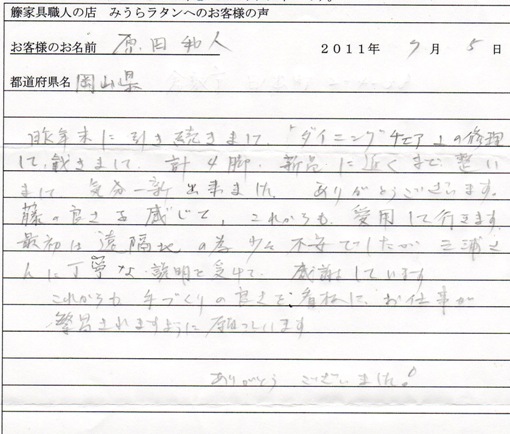 籐家具職人の店 みうらラタンへのお客様の声
お客様のお名前 原田和人 2011年 7月 5日
都道府県名 岡山県
昨年末に引き続きまして、「ダイニングチェア」の修理
して戴きまして、計4脚、新品に近くまで整い
まして 気分一新 出来ました。ありがとうございます。
藤の良さを感じて、これからも、愛用して行きます。
最初は遠隔地の為少々不安でしたが 三浦さ
んに丁寧な説明を受けて、感謝しています
これからも 手づくりの良さを看板に、お仕事が
繁昌されますように願っています
ありがとう ございました!